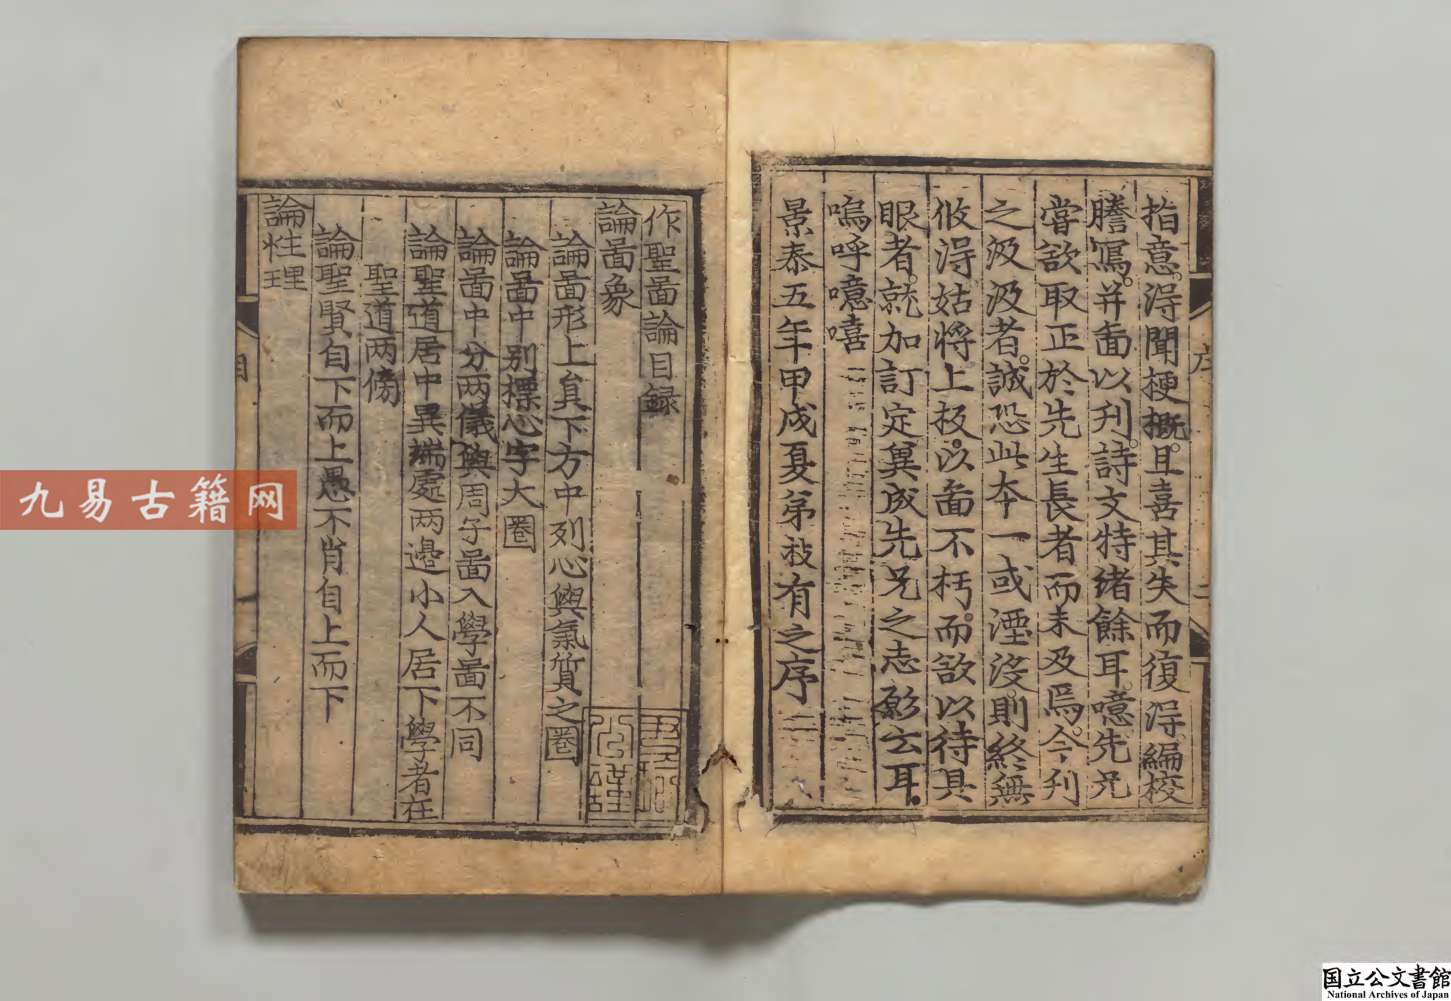 指意。淂聞梗概。且喜其失而復淂編校
謄寫。并啚以刋。詩文特緒餘耳。噫先兄
甞欲取正於先生長者而未及焉。今刋
之汲汲者。誠恐此夲一或湮没。則終無
攸淂姑将上板。以啚不朽。而欲以待具
眼者。就加訂定兾成先兄之志尔云耳。
嗚呼噫嘻
景泰五年甲戍夏弟𥙿有之序
序
二
作聖啚論目録
論啚象
論啚形上貟下方中列心與氣质之圈
論啚中别摽心字大圈
論啚中分两儀與周子啚入學啚不同
論聖道居中異端處两邉小人居下學者在
聖道两傍
論聖賢自下而上愚不肖自上而下
論性理
目
九易古籍网
国立公文書館
National Archives of Japan